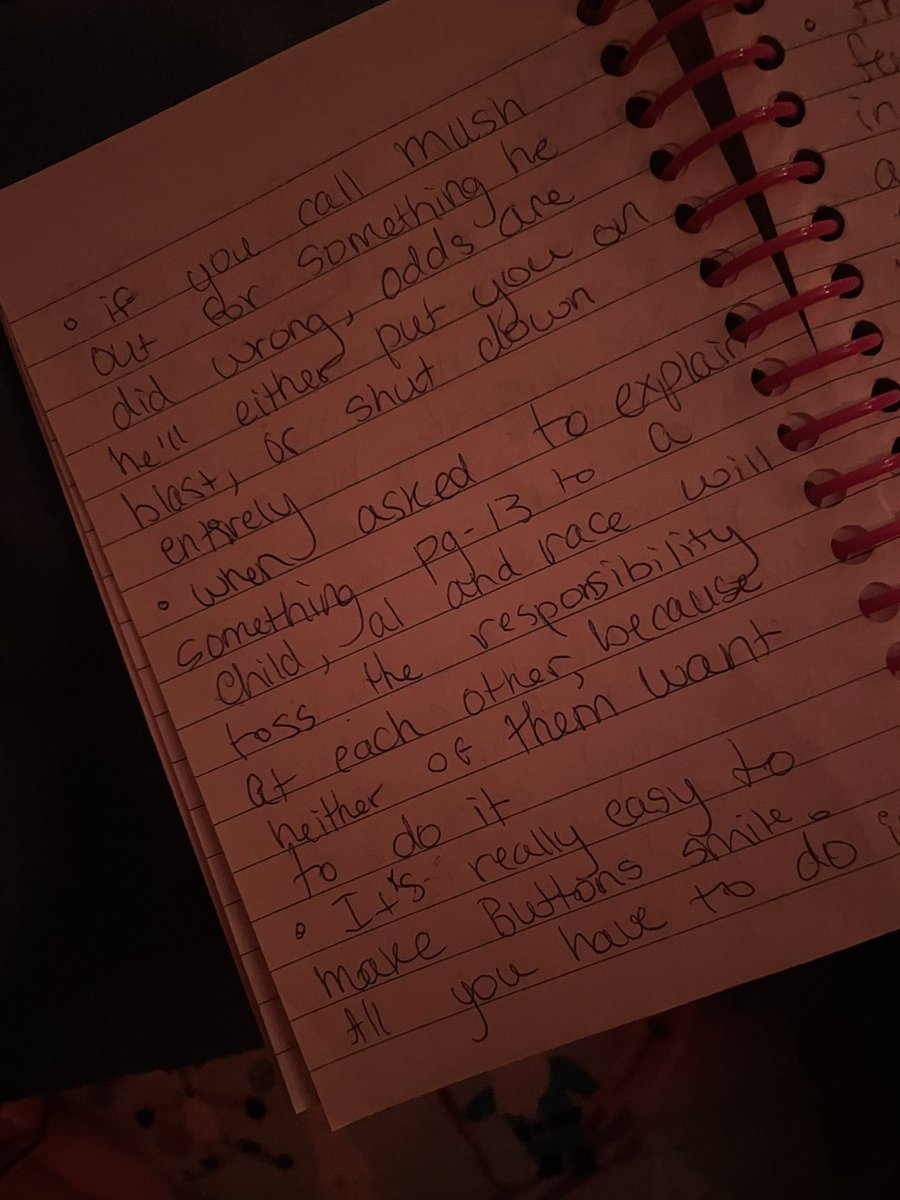 • if you call mush
out for something he
did wrong, odds are
he'll either put you on
blast, or shut down
entirely
• when asked to explain
something pg-13 to a
child, al and race will
toss the responsibility
at each other, because
neither of them want
to do it
• It's really easy to
make Buttons smile.
All you have to do is
in
a